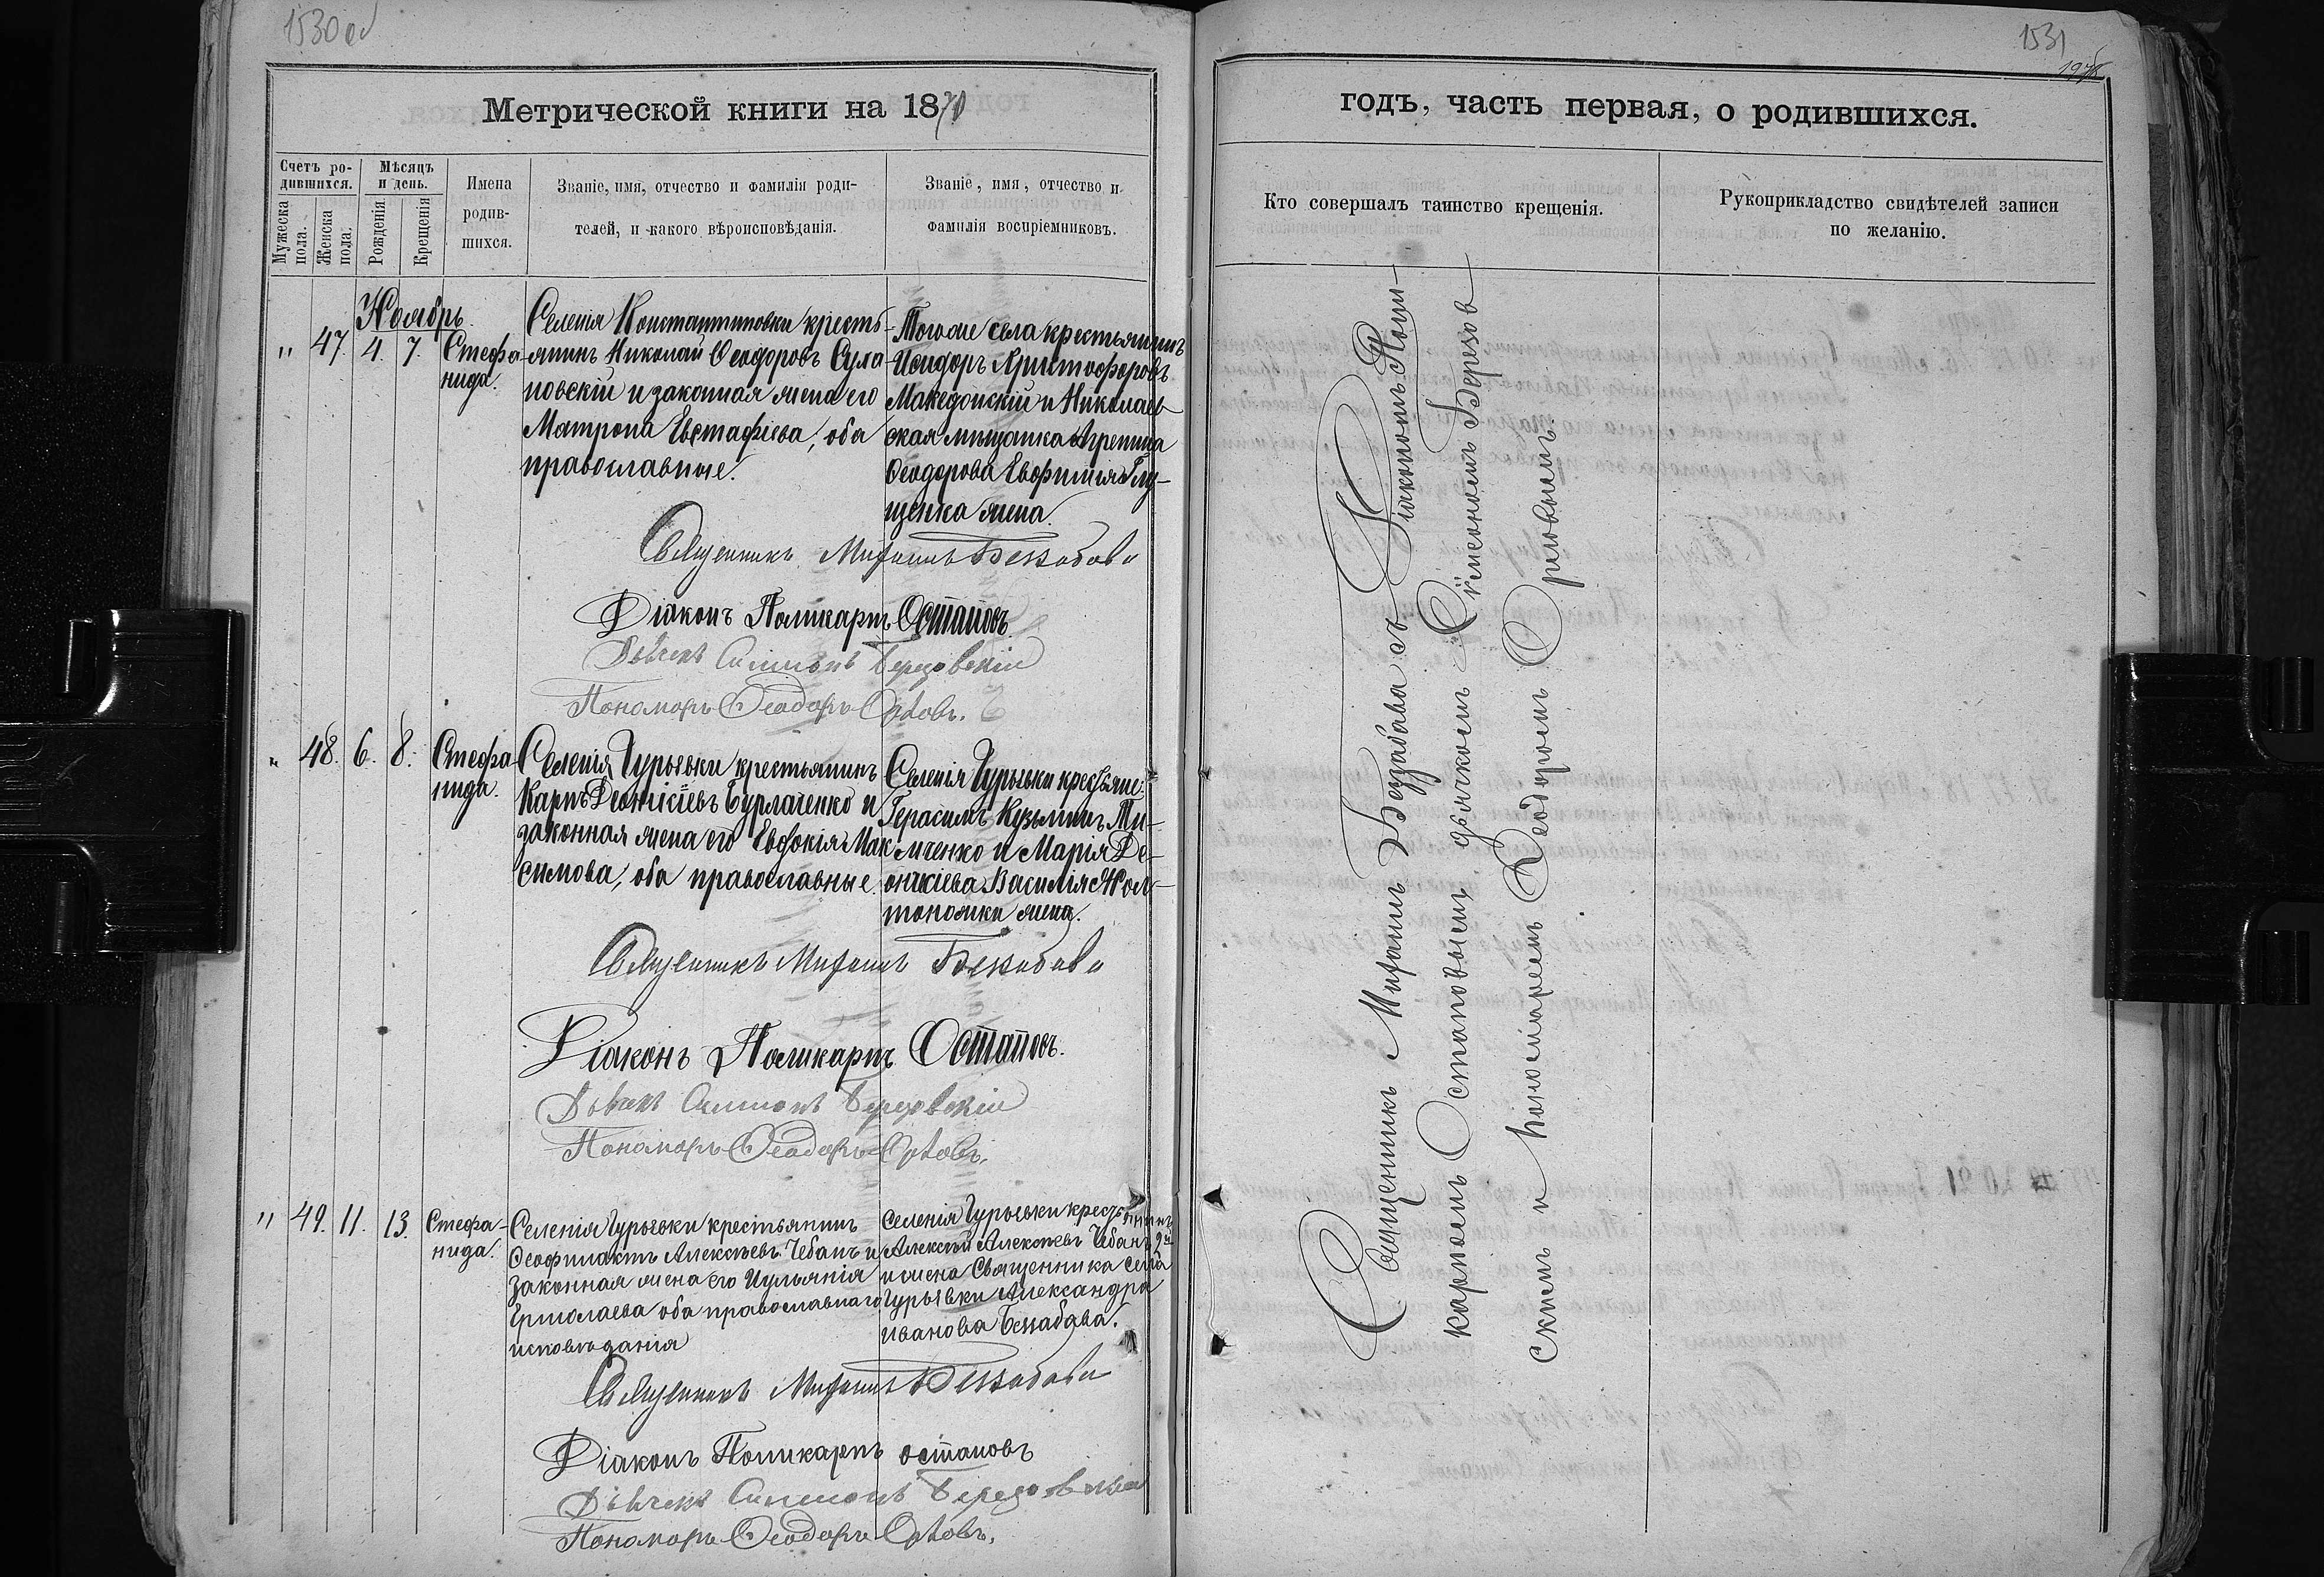 1530 об
Метрической книги на 1870
Счетъ родившихся.
Мѣсяцъ и день.
Мужеска пола.
Женска пола.
Рожденія
Крещенія
Имена родившихся.
Званіе, имя, отчество и фамилія родителей, и какого вѣроисповѣданія.
Званіе, имя, отчество и фамилія воспріемниковъ.
Ноябрь
" 47. 4. 7. Стефанида.
Селенія Константиновки кресть-
янинъ Николай Ѳеодоровъ Сула-
новскій и законная жена его
Матрона Евстафіева, оба
православные.
Тогоже села крестьянинъ
Исидоръ Христофоровъ
Македонскій и Николаев-
ская мѣщанка Агрепина
Ѳеодорова Евфимія Глу-
щенка жена.
Священникъ Мифаилъ Беззабава
Діаконъ Поликарпъ Остаповъ.
Дьячекъ Симеонъ Березовскій
Пономарь Ѳеодоръ Орловъ.
" 48. 6. 8. Стефанида.
Селенія Гурьевки крестьянинъ
Карпъ Деонисіевъ Бурлаченко и
законная жена его Евдокія Мак
симова, оба православные.
Селенія Гурьевки крестьяне:
Герасимъ Кузьминъ Ти-
мченко и Марія Де-
онисіева Василія Жол-
тоножки жена.
Священникъ Мифаилъ Беззабава
Діаконъ Поликарпъ Остаповъ.
Дьячекъ Симеонъ Березовскій
Пономарь Ѳеодоръ Орловъ.
" 49. 11. 13. Стефанида.
Селенія Гурьевки крестьянинъ
Ѳеофилактъ Алексѣевъ Чебанъ и
законная жена его Иульянія
Ермолаева оба православнаго
исповѣданія
Селенія Гурьевки крестьянинъ
Алексѣй Алексѣевъ Чебанъ 2й
и жена Священника села
Гурьевки Александра
Иванова Беззабава.
Священникъ Мифаилъ Беззабава
Діаконъ Поликарпъ Остаповъ
Дьячекъ Симеонъ Березовскій
Пономарь Ѳеодоръ Орловъ.
1531
годъ, часть первая, о родившихся.
Кто совершалъ таинство крещенія.
Рукоприкладство свидѣтелей записи
по желанію.
Священникъ Мифаилъ Беззабава съ Діакономъ Поли-
карпомъ Остаповымъ дьячкомъ Сѵмеономъ Березов
скимъ и Пономаремъ Ѳеодоромъ Орловымъ